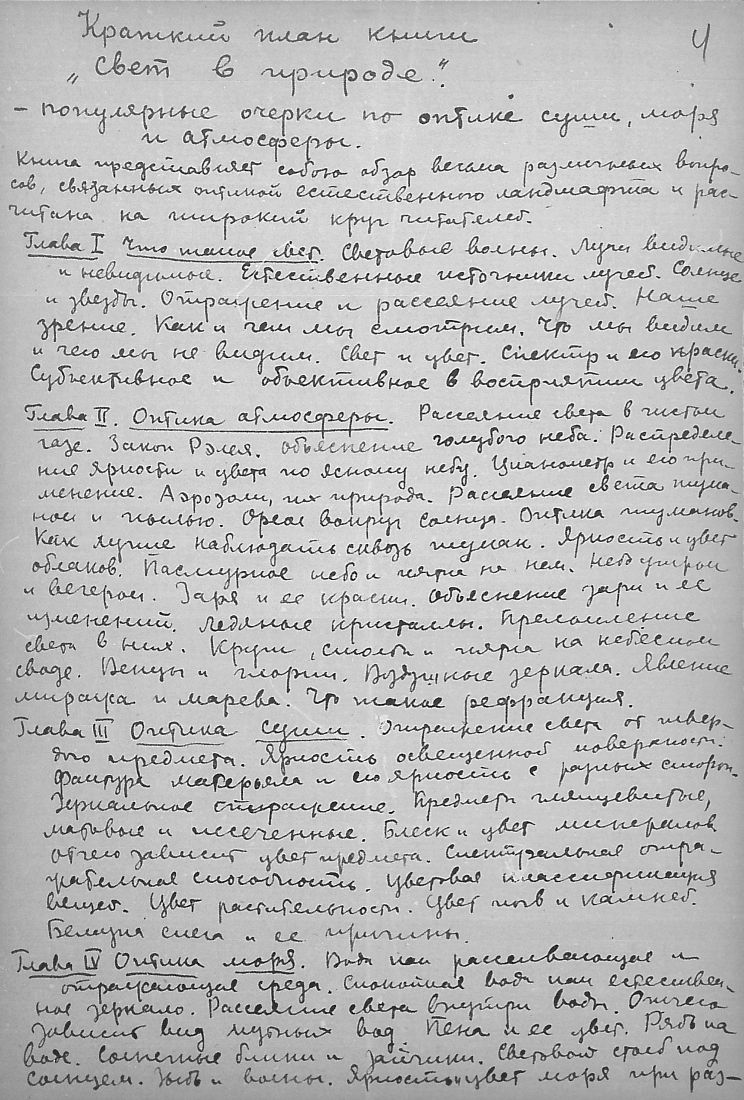 Краткий план книги
4
„Свет в природе".
– популярные очерки по оптике суши, моря
и атмосферы.
Книга представляет собою обзор весьма различных вопро-
сов, связанных оптикой естественного ландшафта и рас-
читана на широкий круг читателей.
Глава I Что такое свет. Световые волны. Лучи видимые
и невидимые. Естественные источники лучей. Солнце
и звезды. Отражение и рассеяние лучей. Наше
зрение. Как и чем мы смотрим. Что мы видим
и чего мы не видим. Свет и цвет. Спектр и его краски.
Субъективное и объективное в восприятии цвета.
Глава II. Оптика атмосферы. Рассеяние света в чистом
газе. Закон Рэлея. Объяснение голубого неба. Распределе-
ние яркости и цвета по ясному небу. Цианометр и его при-
менение. Аэрозоли, их природа. Рассеяние света тума-
ном и пылью. Ореол вокруг солнца. Оптика туманов.
Как лучше наблюдать сквозь туман. Яркость и цвет
облаков. Пасмурное небо и пятна на нем. Небо утром
и вечером. Заря и ее краски. Объяснение зари и ее
изменений. Ледяные кристаллы. Преломление
света в них. Круги, столбы и пятна на небесном
своде. Венцы и глории. Воздушные зеркала. Явление
миража и марева. Что такое рефракция.
Глава III Оптика суши. Отражение света от твер-
дого предмета. Яркость освещенной поверхности.
Фактура матерьяла и его яркость с разных сторон.
Зеркальное отражение. Предметы глянцевитые,
матовые и иссеченные. Блеск и цвет минералов
отчего зависит цвет предмета. Спектральная отра-
жательная способность. Цветовая классификация
вещей. Цвет растительности. Цвет почв и камней.
Белизна снега и ее причины.
Глава IV Оптика моря. Вода как рассеивающая и
отражающая среда. Спокойная вода как естествен-
ное зеркало. Рассеяние света внутри воды. Отчего
зависит вид мутных вод Пена и ее цвет. Рябь на
воде. Солнечные блики и зайчики. Световой столб под
солнцем. Зыбь и волны. Яркость и цвет моря при раз-